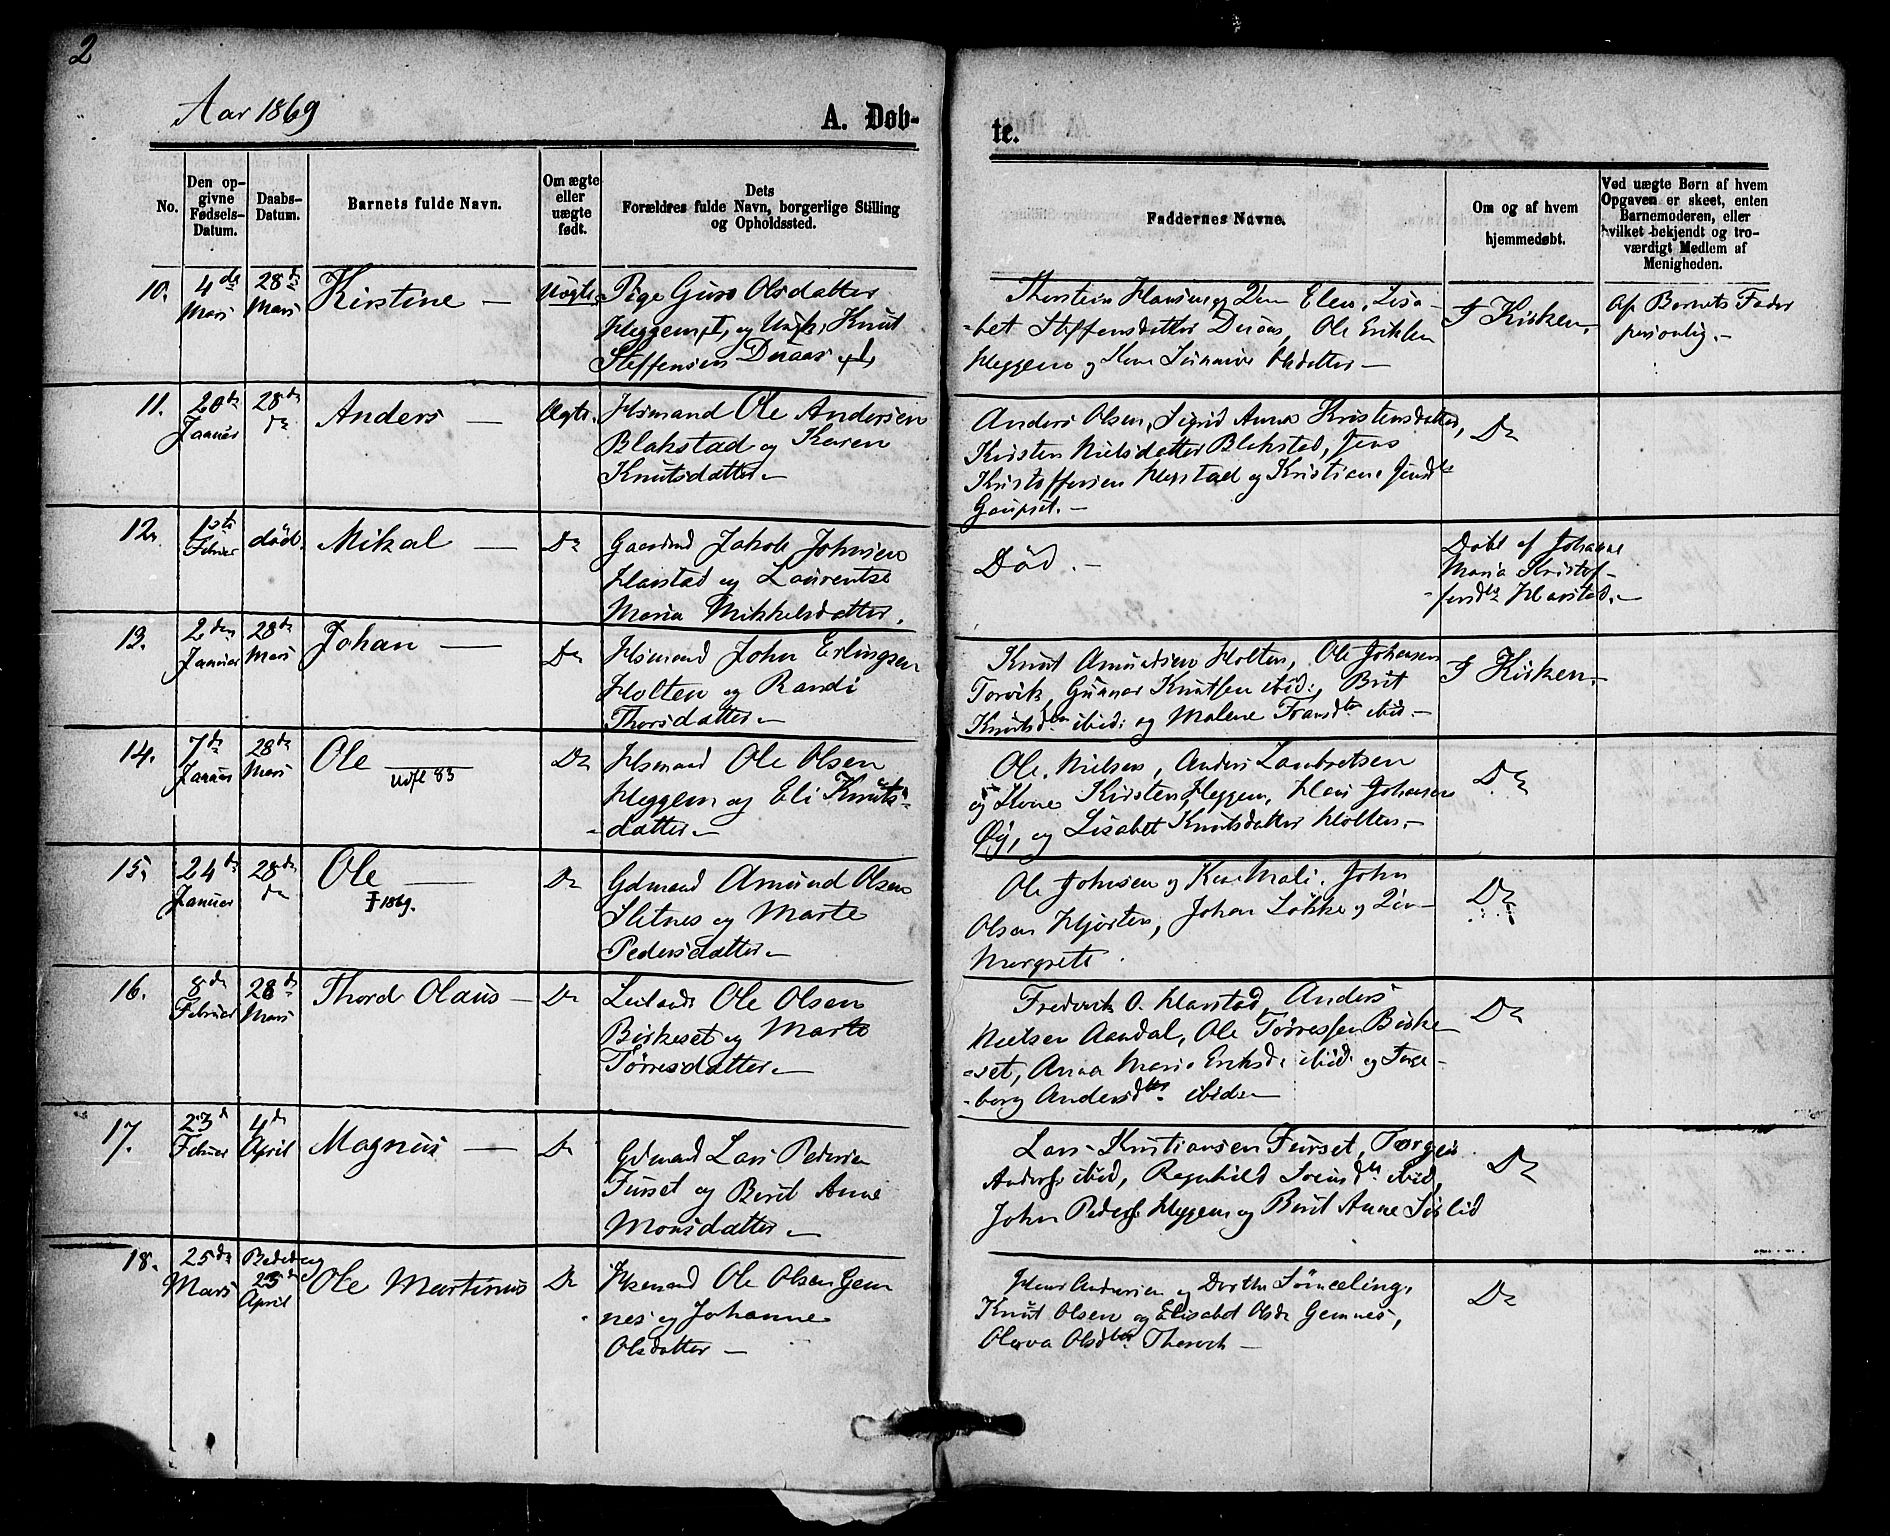 2
Aar 1869
A. Døb-
te.
No.
Den op-
givne
Fødsels-
Datum.
Daabs-
Datum.
Barnets fulde Navn.
Om ægte
eller
uægte
født.
Dets
Forældres fulde Navn, borgerlige Stilling
og Opholdssted.
Faddernes Navne.
Om og af hvem
hjemmedøbt.
Ved uægte Børn af hvem
Opgaven er skeet, enten
Barnemoderen, eller
hvilket bekjendt og tro-
værdigt Medlem af
Menigheden.
10.
4de
Mars
28de
Mars
Kirstine —
Uægte
Pige Guro Olsdatter
Heggem, I, og Ungk. Knut
Steffensen Duaas
Thorstein Hansen og Elen, Lisa-
-bet Steffensdatter Duaas, Ole Eriksen
Heggem og Olsdatter —
I Kirken.
Af Barnets Fader
personlig. —
11.
20de
Januar
28de
do
Anders —
Ægte.
Hsmand Ole Andersen
Blakstad og Karen
Knutsdatter —
Anders Olsen, Sigrid Anna Kristensdatter,
Kirsten Nielsdatter Blakstad, Jens
Kristoffersen Harstad og Kristiane
Gaupset. —
Do
12.
1ste
Februar
død.
Mikal —
Do
Gaardmd Jakob Johnsen
Harstad og Laurentse
Maria Mikkelsdatter.
Død. —
Døbt af Johanne
Maria Kristof-
-fersdtr Harstad. —
13.
2den
Januar
28de
Mars
Johan —
Do
Hsmand John Erlingsen
Holten og Randi
Thorsdatter —
Knut Amundsen Holten, Ole Johnsen
Torvik, Gunnar Knutsen ibid:, Brit
Knutsdtr ibid: og Malene Fransdtr ibid —
I Kirken. —
14.
7de
Januar
28de
Mars
Ole —
Udfl 83
Do
Hsmand Ole Olsen
Heggem og Eli Knuts-
-datter —
Ole Nielsen, Anders
og Kone Kirsten Heggem, Hans Johansen
Øy, og Lisabet Knutsdatter Holten. —
Do
15.
24de
Januar
28de
do
Ole —
† 1869.
Do
Gdmand Amund Olsen
Slitnes og Marte
Pedersdatter —
Ole Johnsen og Kone Mali. John
Olsen Hjorten, Johan Løkke og
Margrete.
Do
16.
8de
Februar
28de
Mars
Thord Olaus —
Do
Ole Olsen
Birkeset og Marte
Tørresdatter —
Frederik O. Harstad, Anders
Nielsen Aandal, Ole Tørressen Birke-
-set, Anna Maria Eriksd. ibid. og Inge-
-borg Andersdtr ibid —
Do
17.
23d
Februar
4de
April
Magnus —
Do
Gdmand Lars Pedersen
Furset og Berit Anne
Monsdatter —
Lars Kristiansen Furset, Torgeir
Anders. ibid, Ragnhild ibid,
John Peders. Heggem og Berit Anne Sørlid
Do
18.
25de
Mars
Bededag
23de
April
Ole Martinus
Do
Hsmand Ole Olsen Gjem-
-nes og Johanne
Olsdatter —
Hans Andersen og Dorthe
Knut Olsen og Elisabet Olsdr Gemnes,
Olava Olsdtr —
Do